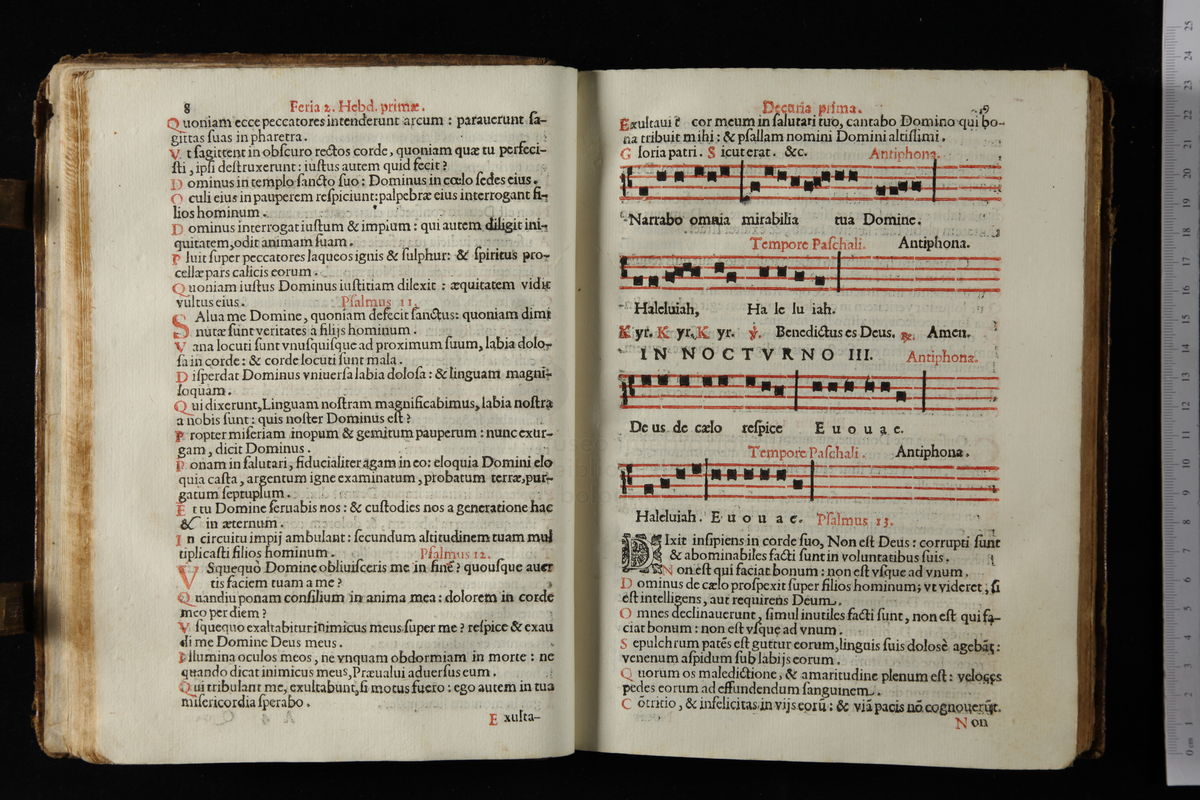 8 Feria 2. Hebd. primæ.
Quoniam ecce peccatores intenderunt arcum : parauerunt sa-
gittas suas in pharetra.
Vt sagittent in obscuro rectos corde, quoniam quæ tu perfeci-
sti, ipsi destruxerunt : iustus autem quid fecit ?
Dominus in templo sancto suo : Dominus in cœlo sedes eius.
Oculi eius in pauperem respiciunt: palpebræ eius interrogant fi-
lios hominum.
Dominus interrogat iustum & impium : qui autem diligit ini-
quitatem, odit animam suam.
Pluit super peccatores laqueos ignis & sulphur: & spiritus pro-
cellæ pars calicis eorum.
Quoniam iustus Dominus iustitiam dilexit : æquitatem vidit
vultus eius. Psalmus 11.
SAlua me Domine, quoniam defecit sanctus: quoniam dimi
nutæ sunt veritates a filijs hominum.
Vana locuti sunt vnusquisque ad proximum suum, labia dolo-
sa in corde : & corde locuti sunt mala.
Disperdat Dominus vniuersa labia dolosa : & linguam magni-
loquam.
Qui dixerunt, Linguam nostram magnificabimus, labia nostra
a nobis sunt : quis noster Dominus est ?
Propter miseriam inopum & gemitum pauperum : nunc exur-
gam, dicit Dominus.
Ponam in salutari, fiducialiter agam in eo: eloquia Domini elo
quia casta, argentum igne examinatum, probatum terræ, pur-
gatum septuplum.
Et tu Domine seruabis nos : & custodies nos a generatione hac
& in æternum.
In circuitu impij ambulant : secundum altitudinem tuam mul
tiplicasti filios hominum. Psalmus 12.
VSquequo Domine obliuisceris me in finē ? quousque auer
tis faciem tuam a me ?
Quandiu ponam consilium in anima mea : dolorem in corde
meo per diem ?
Vsquequo exaltabitur inimicus meus super me ? respice & exau
di me Domine Deus meus.
Illumina oculos meos, ne vnquam obdormiam in morte : ne
quando dicat inimicus meus, Præualui aduersus eum.
Qui tribulant me, exultabunt, si motus fuero : ego autem in tua
misericordia sperabo.
Exulta-
Decuria prima. 9
Exultaui t cor meum in salutari tuo, cantabo Domino qui bo-
na tribuit mihi : & psallam nomini Domini altissimi.
Gloria patri. Sicut erat. &c. Antiphona.
Narrabo omnia mirabilia tua Domine.
Tempore Paschali. Antiphona.
Haleluiah, Ha le lu iah.
Kyr. Kyr. Kyr. ℣. Benedictus es Deus. ℟. Amen.
IN NOCTVRNO III. Antiphona.
De us de cælo respice E u o u a e.
Tempore Paschali. Antiphona.
Haleluiah. E u o u a e. Psalmus 13.
DIxit insipiens in corde suo, Non est Deus : corrupti sunt
& abominabiles facti sunt in voluntatibus suis.
Non est qui faciat bonum : non est vsque ad vnum.
Dominus de cælo prospexit super filios hominum; vt videret, si
est intelligens, aut requirens Deum.
Omnes declinauerunt, simul inutiles facti sunt, non est qui fa-
ciat bonum : non est vsque ad vnum.
Sepulchrum patēs est guttur eorum, linguis suis dolosè agebāt:
venenum aspidum sub labijs eorum.
Quorum os maledictione, & amaritudine plenum est : veloces
pedes eorum ad effundendum sanguinem.
Cōtritio, & infelicitas in vijs eorū : & viā pacis nō cognouerūt.
Non